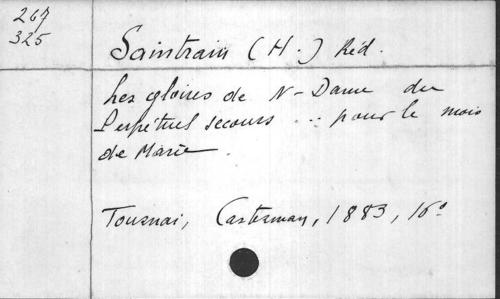 267
325
Saintrain (H.) Réd.
Les gloires de N-Dame du
Perpétuel secours ... pour le mois
de Marie.
Tournai, Casterman, 1883, 16º